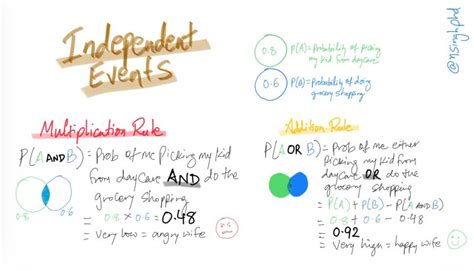 Independent
Events
0.8
P(A)=Probability of picking
my kid from daycare
0.6
P(B)=Probability of doing
grocery shopping
@nsinghphd
Multiplication Rule
P(A AND B) = Prob of me Picking my kid
from daycare AND do the
grocery shopping
= 0.8 x 0.6 = 0.48
= Very low = angry wife
0.8
0.6
Addition Rule
P(A OR B) = Prob of me either
Picking my kid from
daycare OR do the
grocery shopping
= P(A) + P(B) - P(A AND B)
= 0.8 + 0.6 - 0.48
= 0.92
= Very high = happy wife